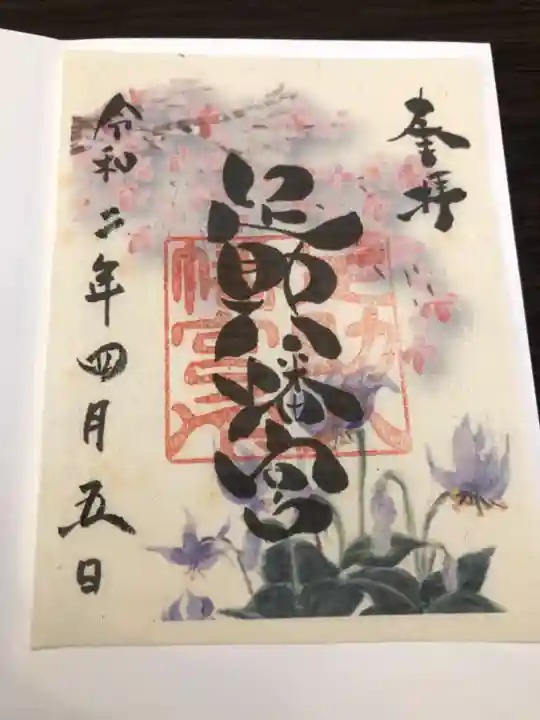 奉拝
足助八幡宮
令和二年四月五日